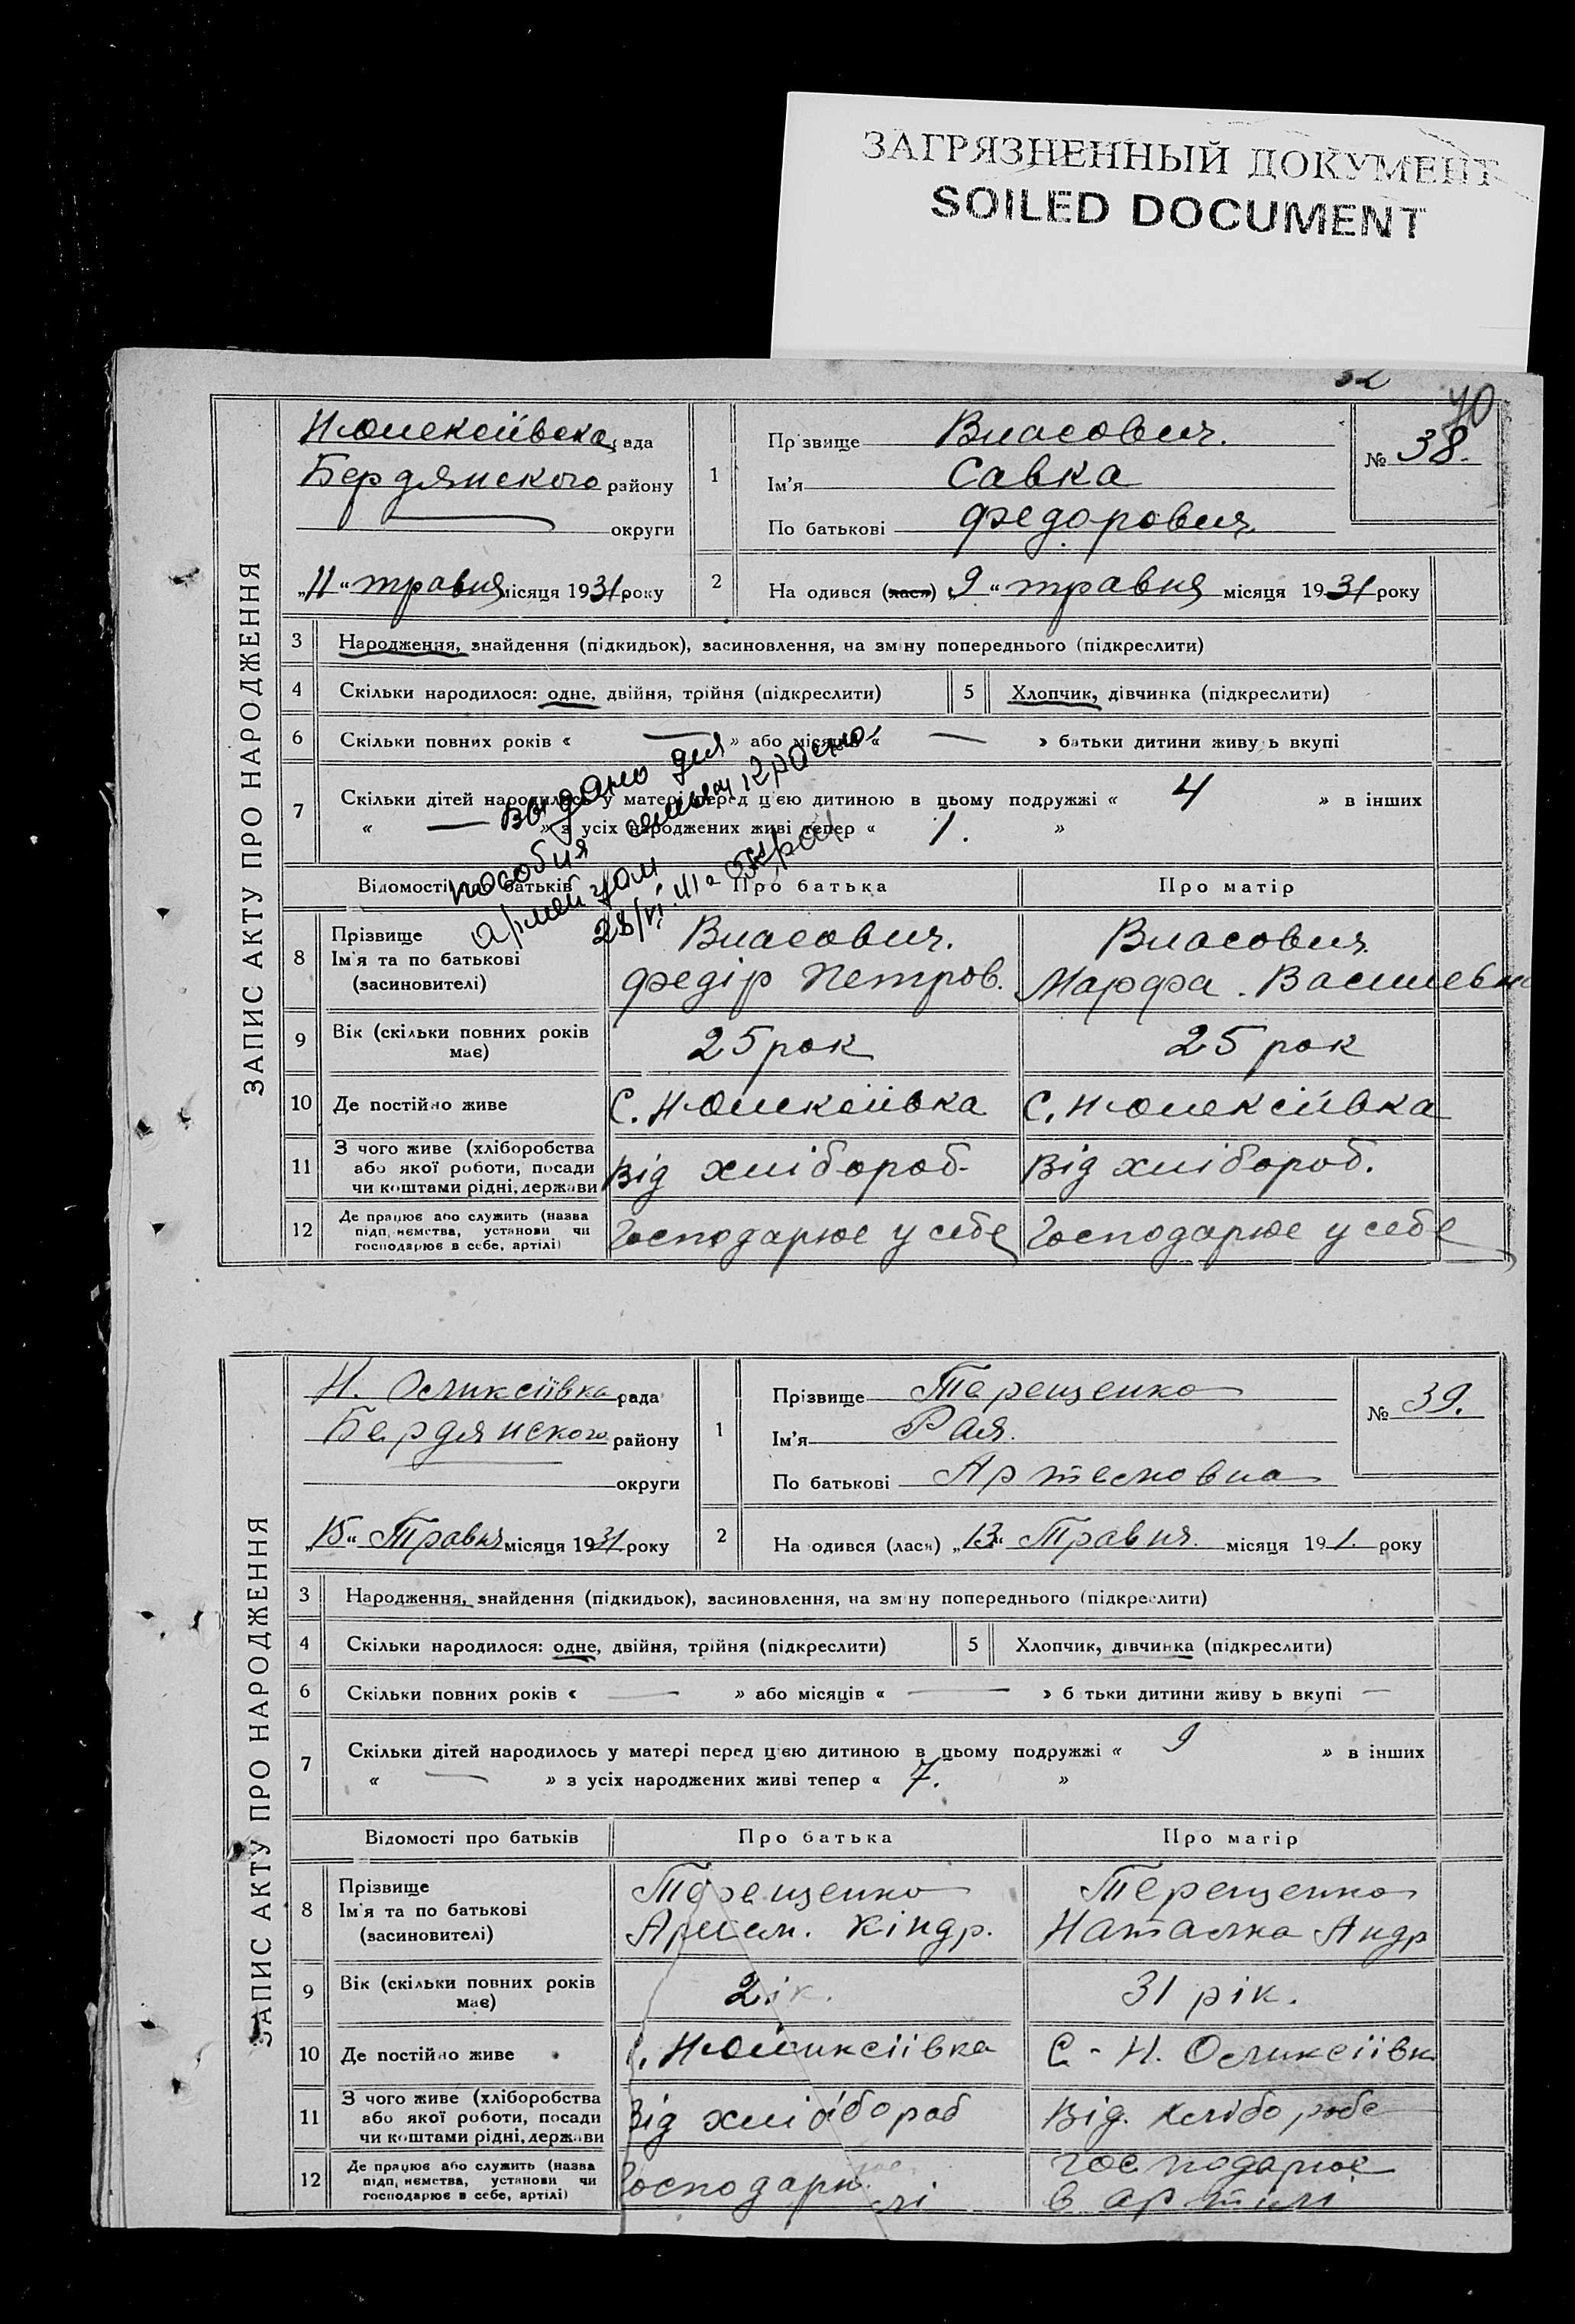 ЗАГРЯЗНЕННЫЙ ДОКУМЕНТ
SOILED DOCUMENT
32
40
ЗАПИС АКТУ ПРО НАРОДЖЕННЯ
Н-Олексеївска рада
Бердянского району
округи
„11“ травня місяця 1931 року
1
Прізвище Власович.
Ім'я Савка
По батькові Федорович
№ 38.
2
На одився (лася) „9“ травня місяця 1931 року
3 Народження, знайдення (підкидьок), засиновлення, на зміну попереднього (підкреслити)
4 Скільки народилося: одне, двійня, трійня (підкреслити)
5 Хлопчик, дівчинка (підкреслити)
6 Скільки повних років « — » або місяців « — » батьки дитини живу ь вкупі
7 Скільки дітей народилось у матері перед цією дитиною в цьому подружжі « 4 » в інших
« — » з усіх народжених живі тепер « 1. »
Выдано для
пособия семьям красно
армейцам
28/VI
Відомості про батьків Про батька Про матір
8 Прізвище
Ім'я та по батькові
(засиновителі)
Власович.
Федір Петров.
Власович
Марфа. Василевна
9 Вік (скільки повних років має) 25 рок 25 рок
10 Де постійно живе С. Н-Олексеївка С. Н-Олексеївка
11 З чого живе (хліборобства
або якої роботи, посади
чи коштами рідні, держави
Від хлібороб- Від хлібороб.
12 Де працює або служить (назва
підп, иємства, установи чи
господарює в себе, артілі)
Господарює у себе Господарює у себе
ЗАПИС АКТУ ПРО НАРОДЖЕННЯ
Н. Оликсіївка рада
Бердянского району
округи
„15“ Травня місяця 1931 року
1
Прізвище Терещенко
Ім'я Рая.
По батькові Артемовна
№ 39.
2
На одився (лася) „13“ Травня. місяця 19 1. року
3 Народження, знайдення (підкидьок), засиновлення, на зм ну попереднього (підкреслити)
4 Скільки народилося: одне, двійня, трійня (підкреслити)
5 Хлопчик, дівчинка (підкреслити)
6 Скільки повних років « — » або місяців « — » б тьки дитини живу ь вкупі —
7 Скільки дітей народилось у матері перед цією дитиною в цьому подружжі « 9 » в інших
« — » з усіх народжених живі тепер « 7. »
Відомості про батьків Про батька Про матір
8 Прізвище
Ім'я та по батькові
(засиновителі)
Терещенко
Кіндр.
Терещенко
Наталка Андр
9 Вік (скільки повних років має) 31 рік.
10 Де постійно живе Н-Оликсіївка С - Н. Оликсіївк
11 З чого живе (хліборобства
або якої роботи, посади
чи коштами рідні, держави
Від хлібороб Від. хлібо робс
12 Де працює або служить (назва
підп, иємства, установи чи
господарює в себе, артілі)
Господарю лі
Господарює
в артілі